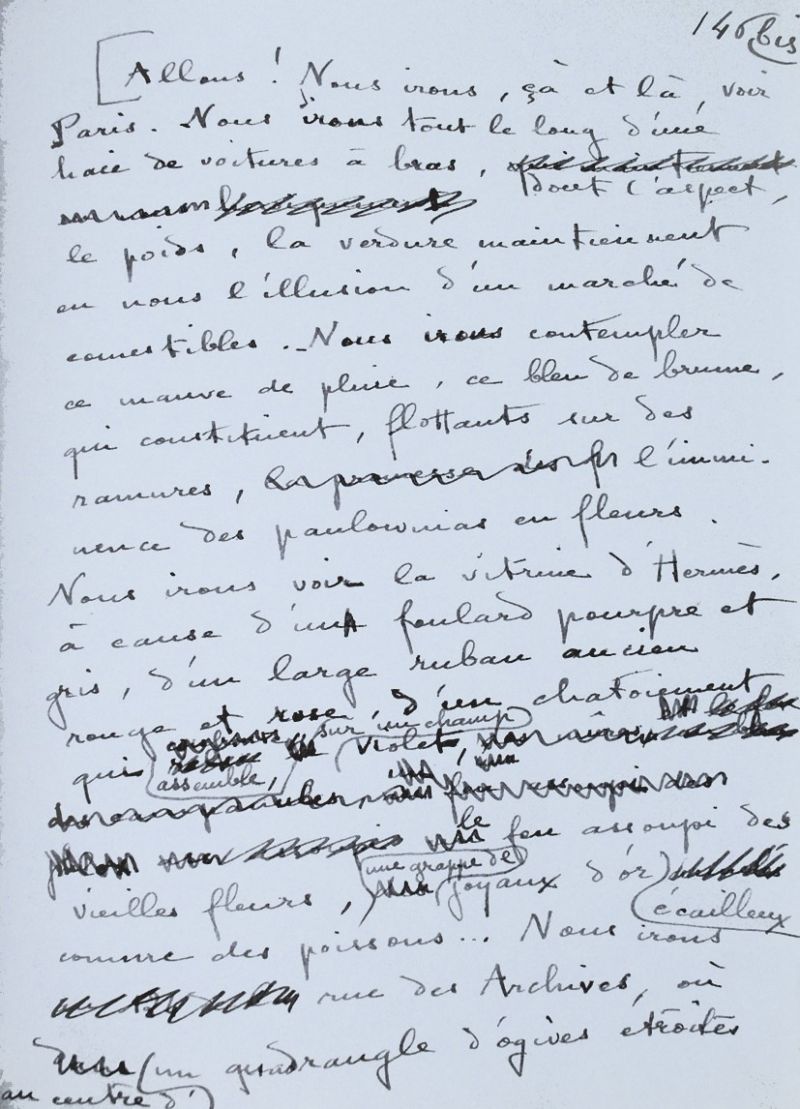 146 bis
[Allons ! Nous irons, çà et là, voir
Paris. Nous irons tout le long d'une
haie de voitures à bras,
dont l'aspect,
le poids, la verdure maintiennent
en nous l'illusion d'un marché de
comestibles. Nous irons contempler
ce mauve de pluie, ce bleu de brume,
qui constituent, flottants sur des
ramures, la promesse des l'immi-
nence des paulownias en fleurs.
Nous irons voir la vitrine d'Hermès,
à cause d'un foulard pourpre et
gris, d'un large ruban ancien
rouge et rose, d'un chatoiement
sur un champ
qui violet,
assemble,
le
feu assoupi des
une grappe de
vieilles fleurs, joyaux d'or
écailleux
comme des poissons... Nous irons
rue des Archives, où
un quadrangle d'ogives étroites
au centre d'